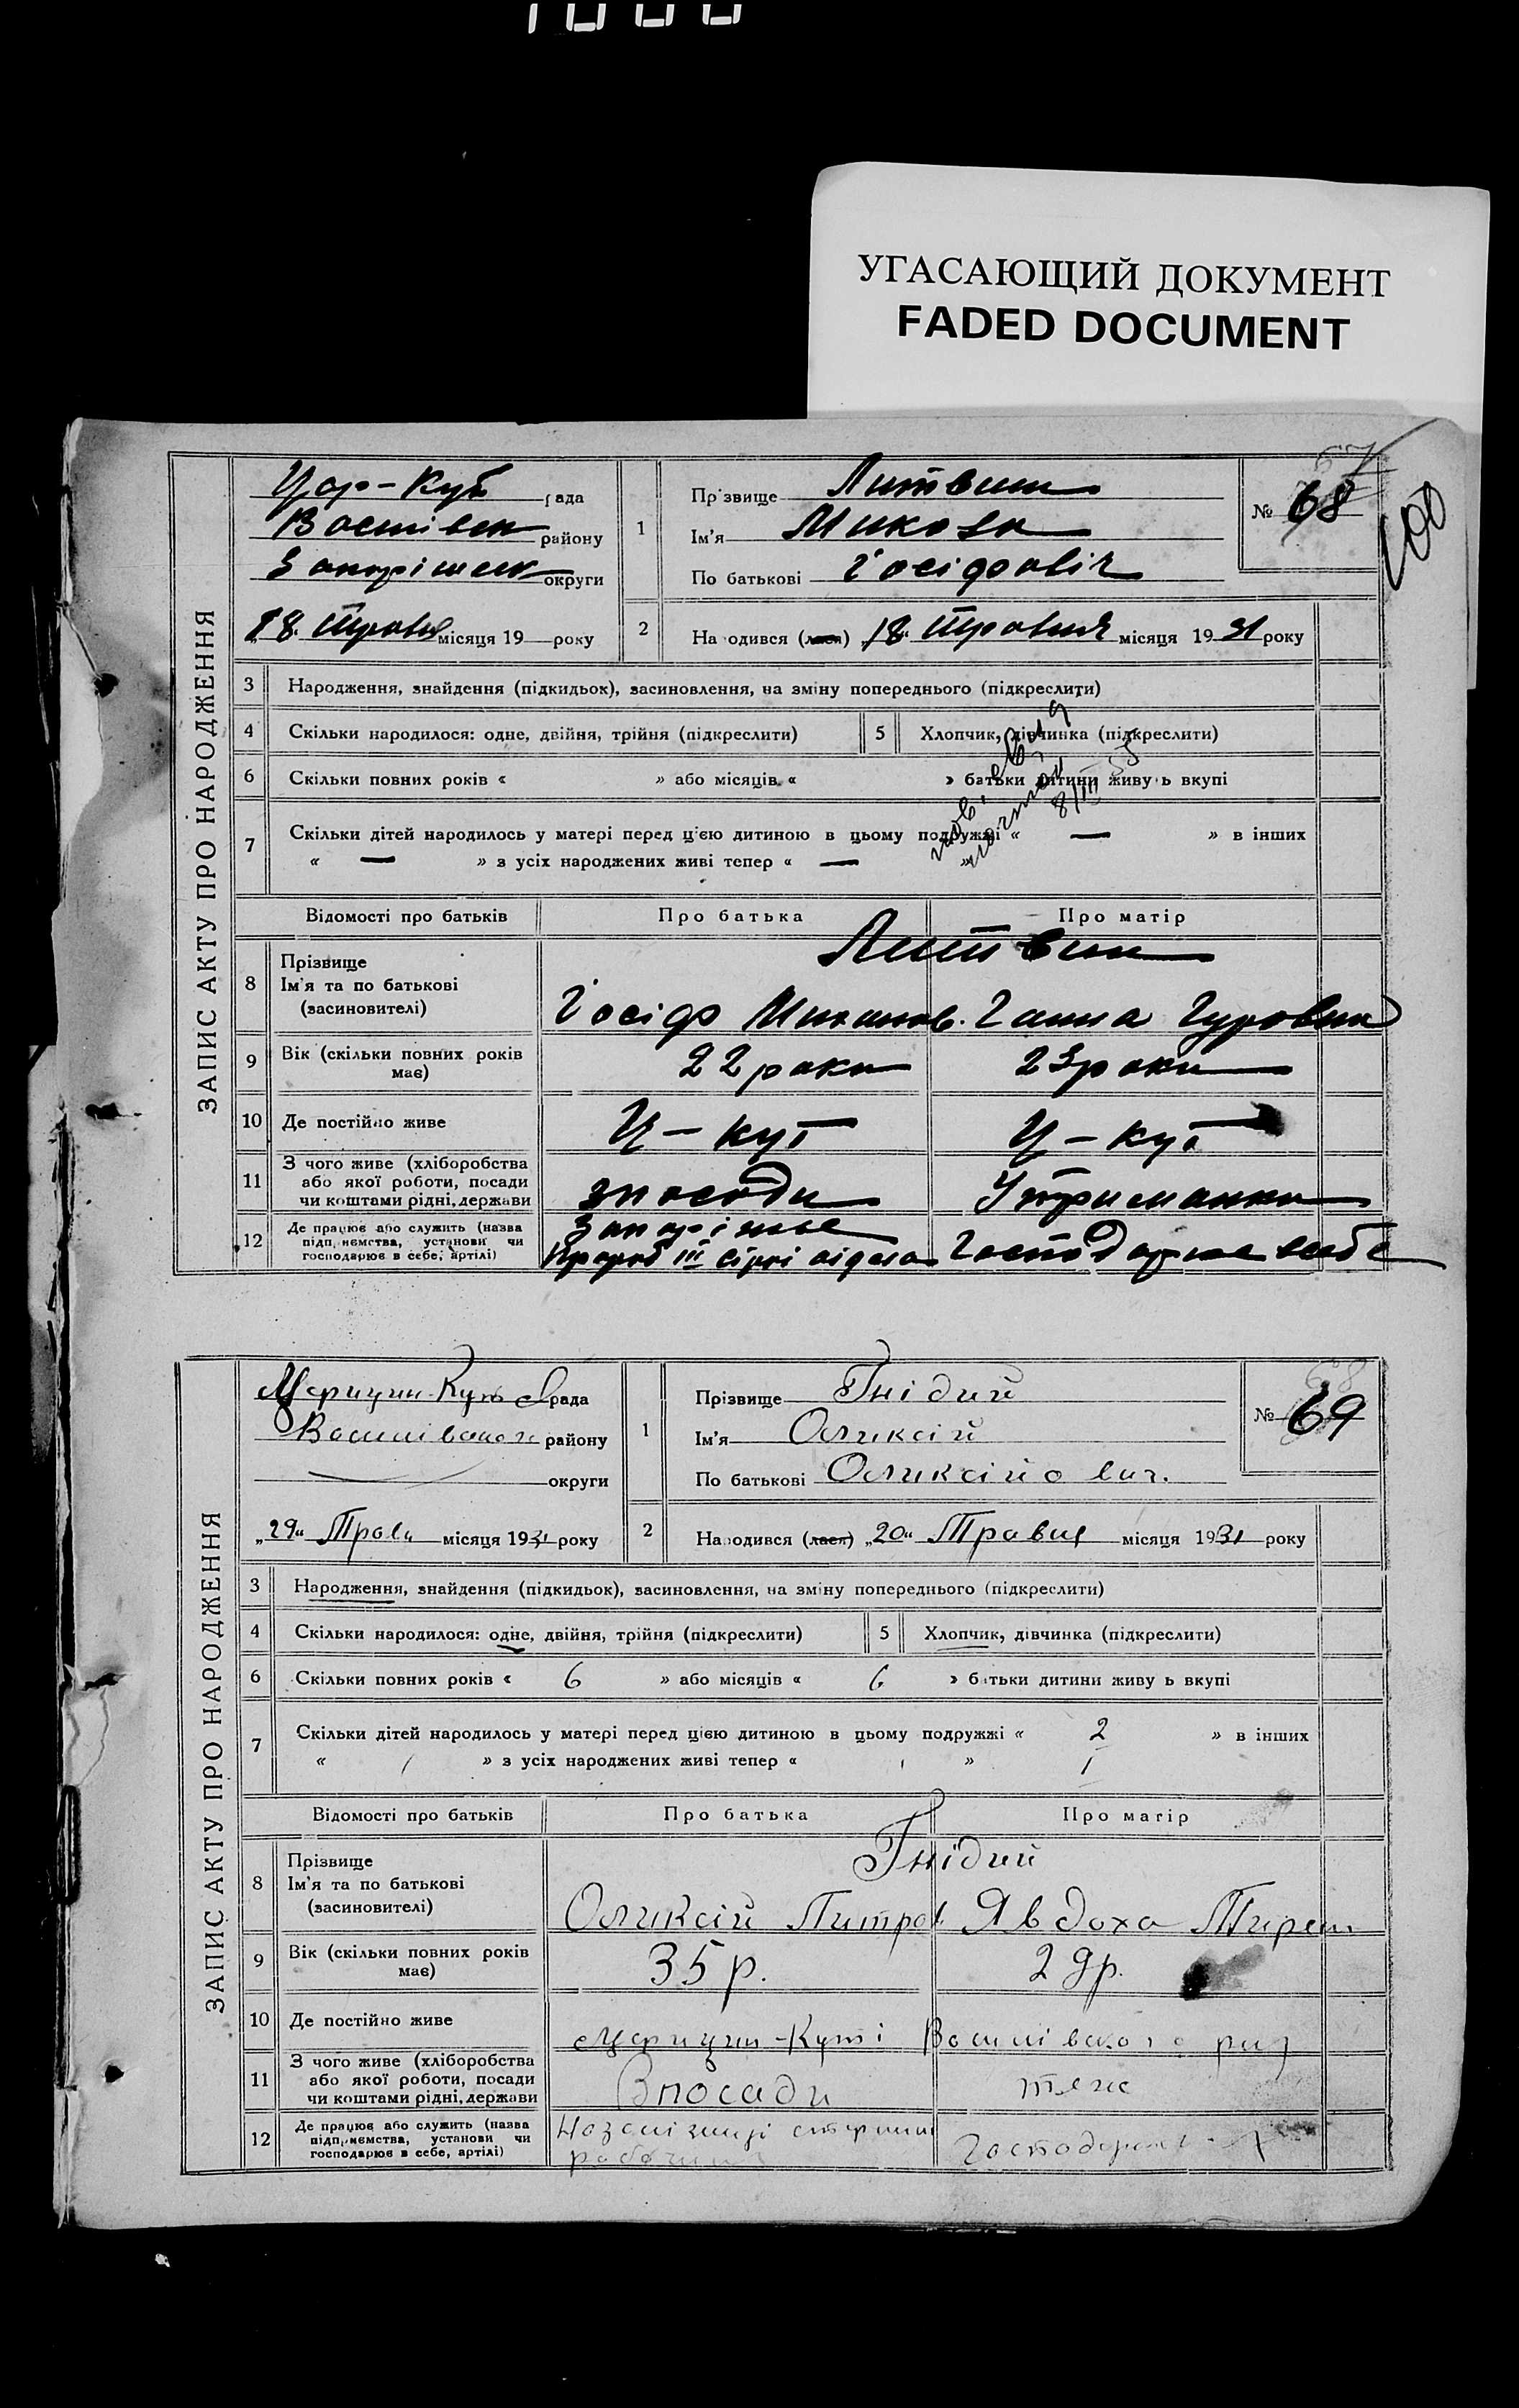 УГАСАЮЩИЙ ДОКУМЕНТ
FADED DOCUMENT
100
ЗАПИС АКТУ ПРО НАРОДЖЕННЯ
Цар-Кут рада
району
округи
18 Травня місяця 19 року
1
Прізвище Литвин
Ім'я Микола
По батькові Іосіфовіч
67
№ 68
2
Народився (лася) „18“ Травня місяця 1931 року
3 Народження, знайдення (підкидьок), засиновлення, на зміну попереднього (підкреслити)
4 Скільки народилося: одне, двійня, трійня (підкреслити)
5 Хлопчик, дівчинка (підкреслити)
6 Скільки повних років « » або місяців « » батьки дитини живуть вкупі
8/III 55
7 Скільки дітей народилось у матері перед цією дитиною в цьому подружжі « — » в інших
« — » з усіх народжених живі тепер « — »
Відомості про батьків Про батька Про матір
Литвин
8 Прізвище
Ім'я та по батькові
(засиновителі)
Іосіф Ганна Гуровна
9 Вік (скільки повних років
має)
22 роки 23 роки
10 Де постійно живе Ц-кут Ц-кут
11 З чого живе (хліборобства
або якої роботи, посади
чи коштами рідні, держави
з посади Утриманка
12 Де працює або служить (назва
підприємства, установи чи
господарює в себе, артілі)
Запоріжжє
III Господарює в себе
ЗАПИС АКТУ ПРО НАРОДЖЕННЯ
Царицин-Кут С рада
району
округи
„29“ Трав. місяця 1931 року
1
Прізвище Гнідий
Ім'я Оликсій
По батькові Оликсійович.
68
№ 69
2
Народився (лася) „20“ Травня місяця 1931 року
3 Народження, знайдення (підкидьок), засиновлення, на зміну попереднього (підкреслити)
4 Скільки народилося: одне, двійня, трійня (підкреслити)
5 Хлопчик, дівчинка (підкреслити)
6 Скільки повних років « 6 » або місяців « 6 » батьки дитини живуть вкупі
7 Скільки дітей народилось у матері перед цією дитиною в цьому подружжі « 2 » в інших
« / » з усіх народжених живі тепер « » 1
Відомості про батьків Про батька Про матір
Гнідий
8 Прізвище
Ім'я та по батькові
(засиновителі)
Оликсій Питров Явдоха
9 Вік (скільки повних років
має)
35 р. 29 р.
10 Де постійно живе Царицин-Куті Василівского рай
11 З чого живе (хліборобства
або якої роботи, посади
чи коштами рідні, держави
З посади теж
12 Де працює або служить (назва
підприємства, установи чи
господарює в себе, артілі)
На робочим